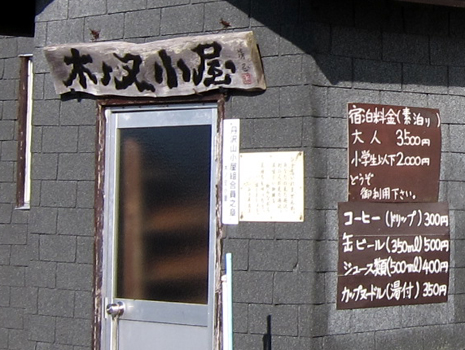 木ノ又小屋
丹沢山小屋組合員之章
宿泊料金(素泊り)
大人 3.500円
小学生以下2.000円
どうぞ
御利用下さい。
コーヒー(ドリップ)300円
缶ビール(350ml)500円
ジュース類(500ml)400円
カップヌードル(湯付)350円